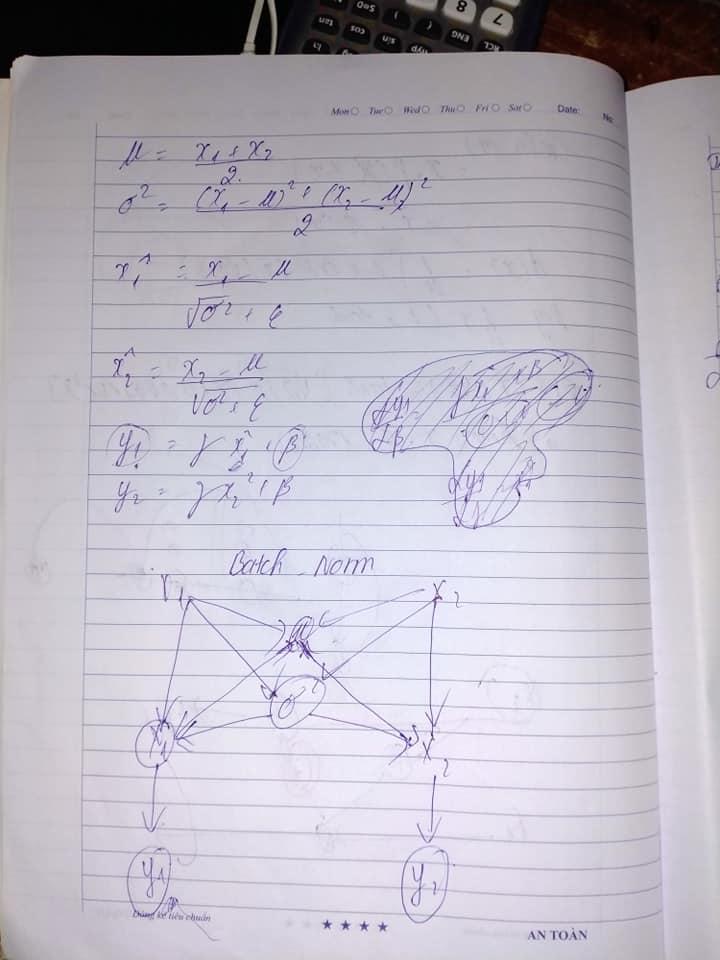 7 8 ) (
RCL ENG
hyp sin cos tan
Mon Tue Wed Thu Fri Sat Date: No:
μ = x₁ + x₂ / 2
σ² = (x₁ - μ)² + (x₂ - μ)² / 2
x̂₁ = x₁ - μ / √σ² + ε
x̂₂ = x₂ - μ / √σ² + ε
y₁ = γ x̂₁ + β
y₂ = γ x₂^ + β
Batch Norm
x₁ x₂
μ
σ²
x̂₁ x̂₂
y₁ y₂
Đáng kể tiêu chuẩn ★★★★ AN TOÀN